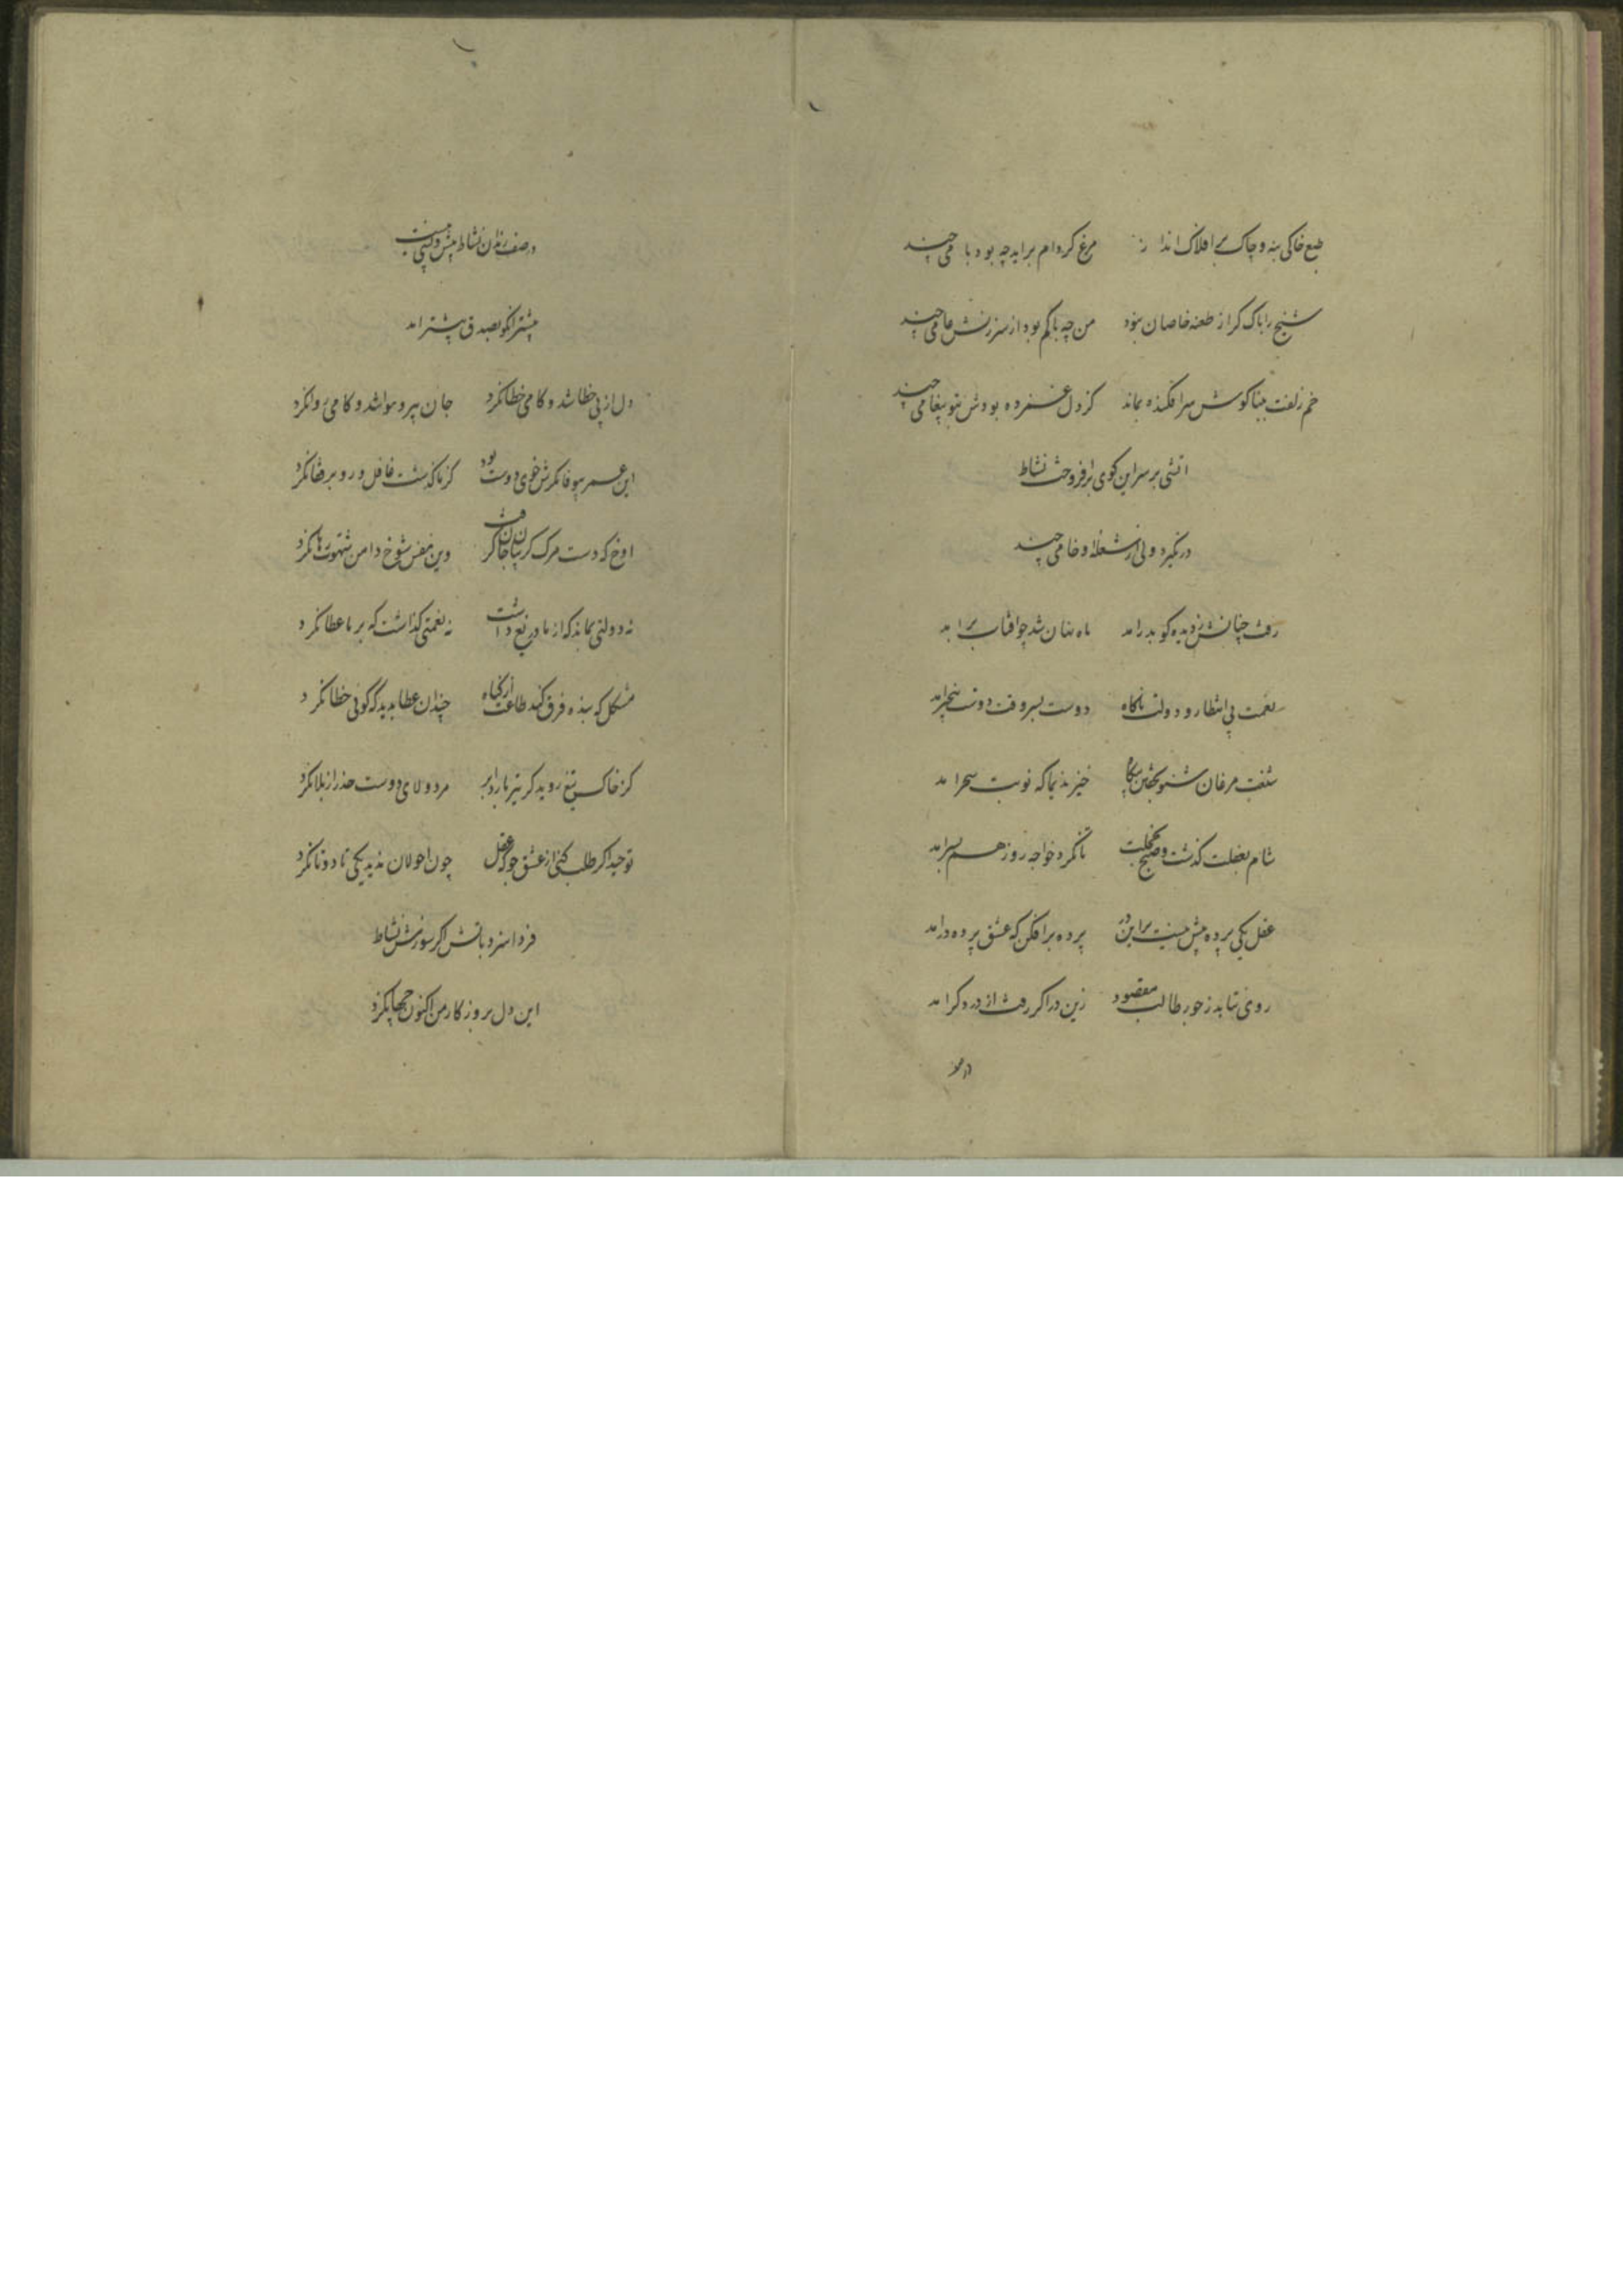 طبع خاکی بنه و چاک بر افلاک انداز مرغ کز دام براید چه بود بامی چند
شیخ را باک گر از طعنه خاصان نبود من چه باکم بود از سرزنش عامی چند
خم زلفت ببناگوش سرافکنده بماند کز دل غمزده بودش بتو پیغامی چند
اتشی بر سر این کوی برافروخت نشاط
در نگیرد ولی از شعله او خامی چند
رفت چنانش ز دیده کو بدرامد ماه نهان شد چو افتاب برامد
نعمت بی انتظار و دولت ناگاه دوست بسر وقت دوست بیخبرامد
شنو خیز ندیما که نوبت سحرامد
شام بغفلت گذشت و صبح بخجلت تا نگرد خواجه روز هم بسرامد
عقل یکی پرده بیش نیست برین در پرده برافکن که عشق پرده درامد
روی نتابد ز جور طالب مقصود زین در اگر رفت از در دگرامد
در صف رندان نشاط پیش و پسی نیست
پیشتر انکو بصدق بیشترامد
دل از پی خطا شد و کامی خطا نکرد جان پیرو هوا شد و کامی روا نکرد
این عمر بیوفا مگرش خوی دوست بود کز ما گذشت غافل و رو بر قفا نکرد
اوخ که دست مرگ گریبان جان گرفت وین نفس شوخ دامن شهوت رها نکرد
نه دولتی بماند که از ما دریغ داشت نه نعمتی گذاشت که بر ما عطا نکرد
مشکل که بنده فرق کند طاعت از گناه چندان عطا بدید که گوئی خطا نکرد
کز خاک تیغ روید گر تیر بارد ابر مرد ولای دوست حذر از بلا نکرد
توحید اگر طلب کنی از عشق جو که عقل چون احولان ندید یکی تا دو تا نکرد
فردا سزد باتش اگر سوزدش نشاط
این دل بروزگار من اکنون چها نکرد